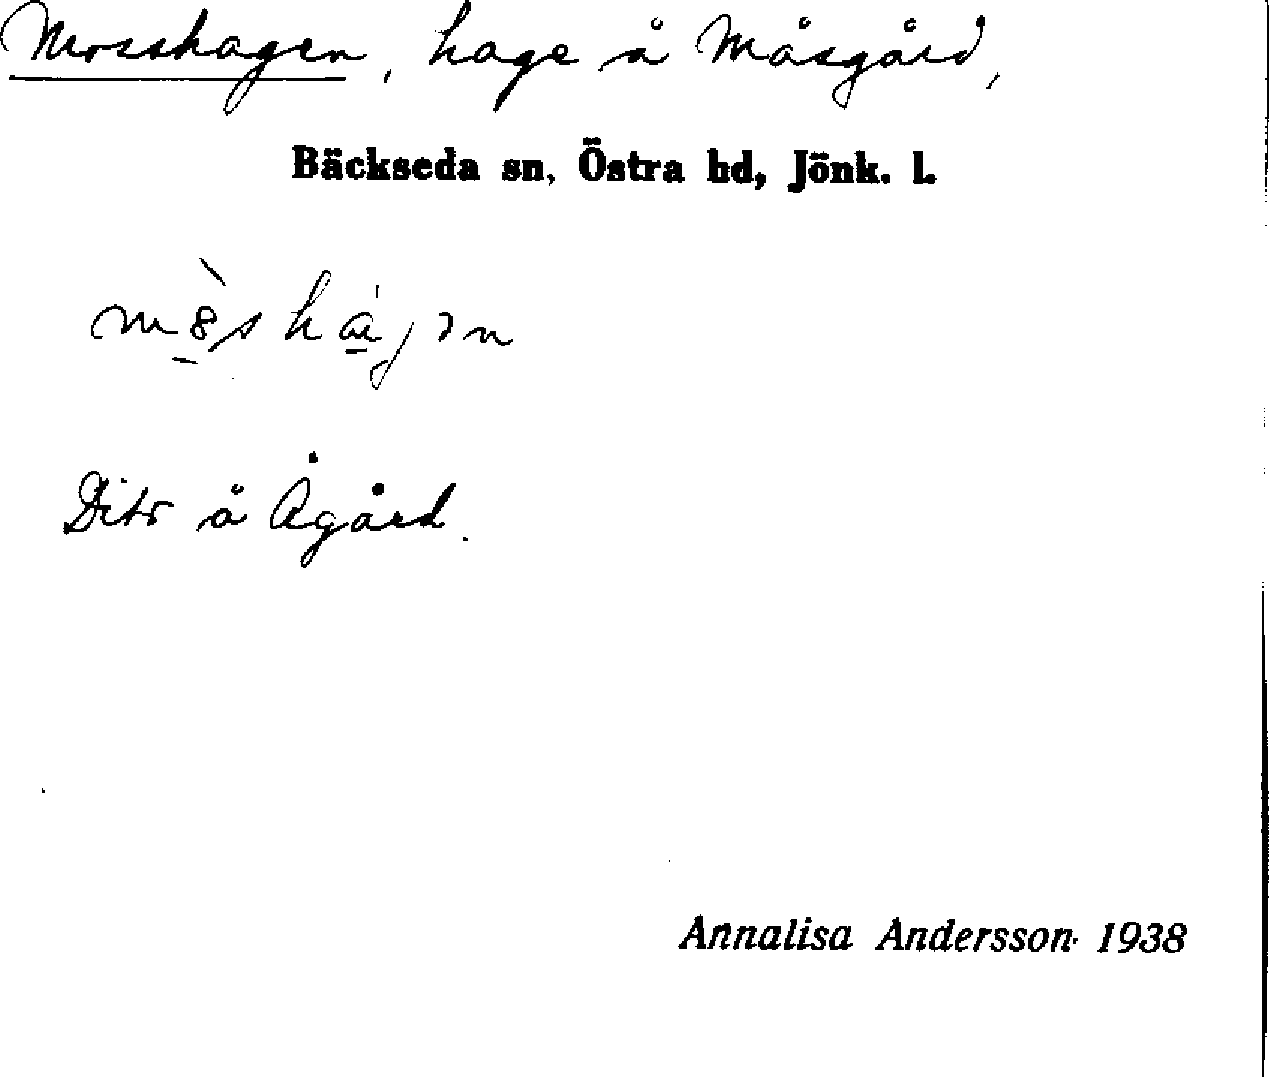 Mosshagen, hage å Måsgård,
Bäckseda sn, Östra hd, Jönk. l.
Dito å Ågård.
Annalisa Andersson 1938